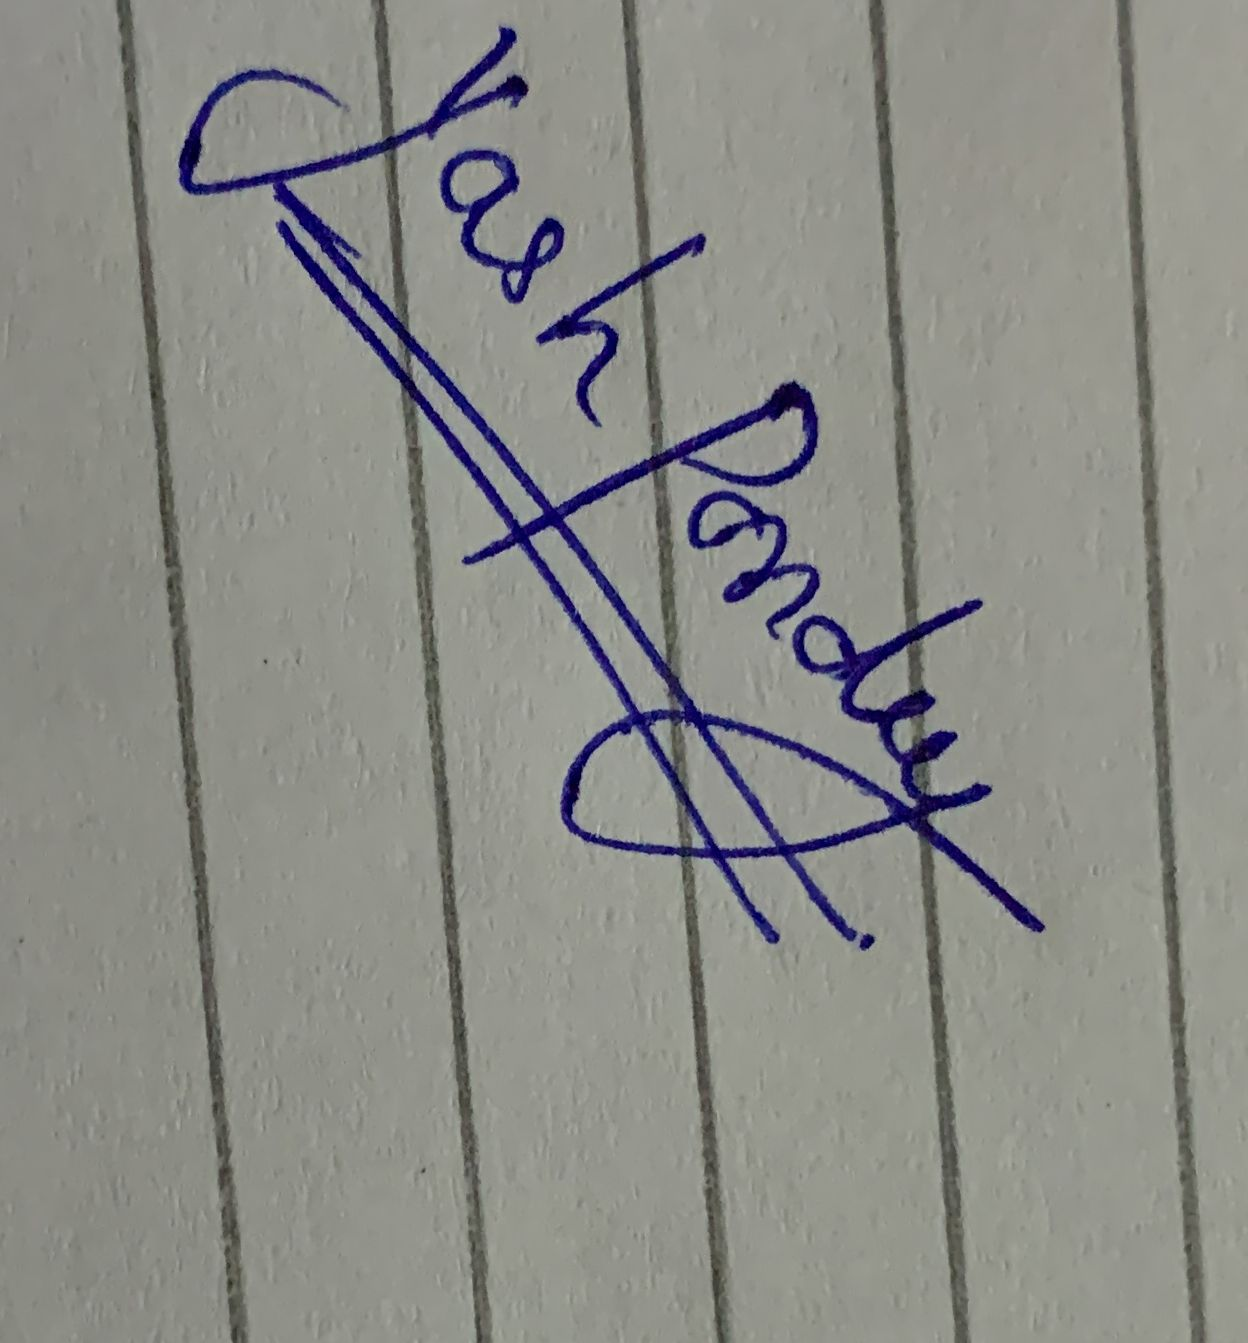 Yash Pandey